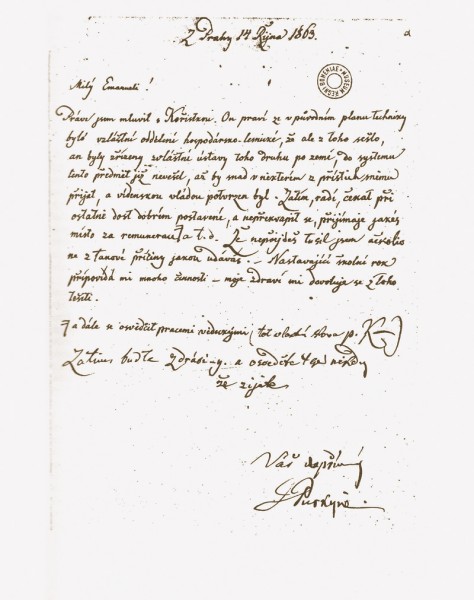 Z Prahy 14 Října 1863.
Milý Emanueli!
Právě jsem mluvil s Kořistkou. On praví že v původním planu techniky
bylo zvláštní oddělení hospodársko-lesnické, že ale z toho sešlo,
an byly zřízeny zvláštní ústavy toho druhu po zemi, do systemu
tento předmět již nevešel, až by snad v některém z příštích sněmu
přijat, a videnskou vládou potvrzen byl. Zatím, radí, čekat při
ostatně dost dobrém postavení, a nepřekvapit se, přijímaje jakés
místo za remuneraci a t. d. Že nepřijdeš tušil jsem
ne z tanové příčiny jakou udáváš. – Nastavající školní rok
připovídá mi mnoho činnosti – moje zdraví mi dovoluje se z toho
těšiti.
a dále se osvědčit pracemi vědeckými, toť vlastní slova p. K
Zatím buďte zdrávi a
že žijete
Váš upřímný
J Purkyně.
MUSEUM REGNI BOHEMIAE